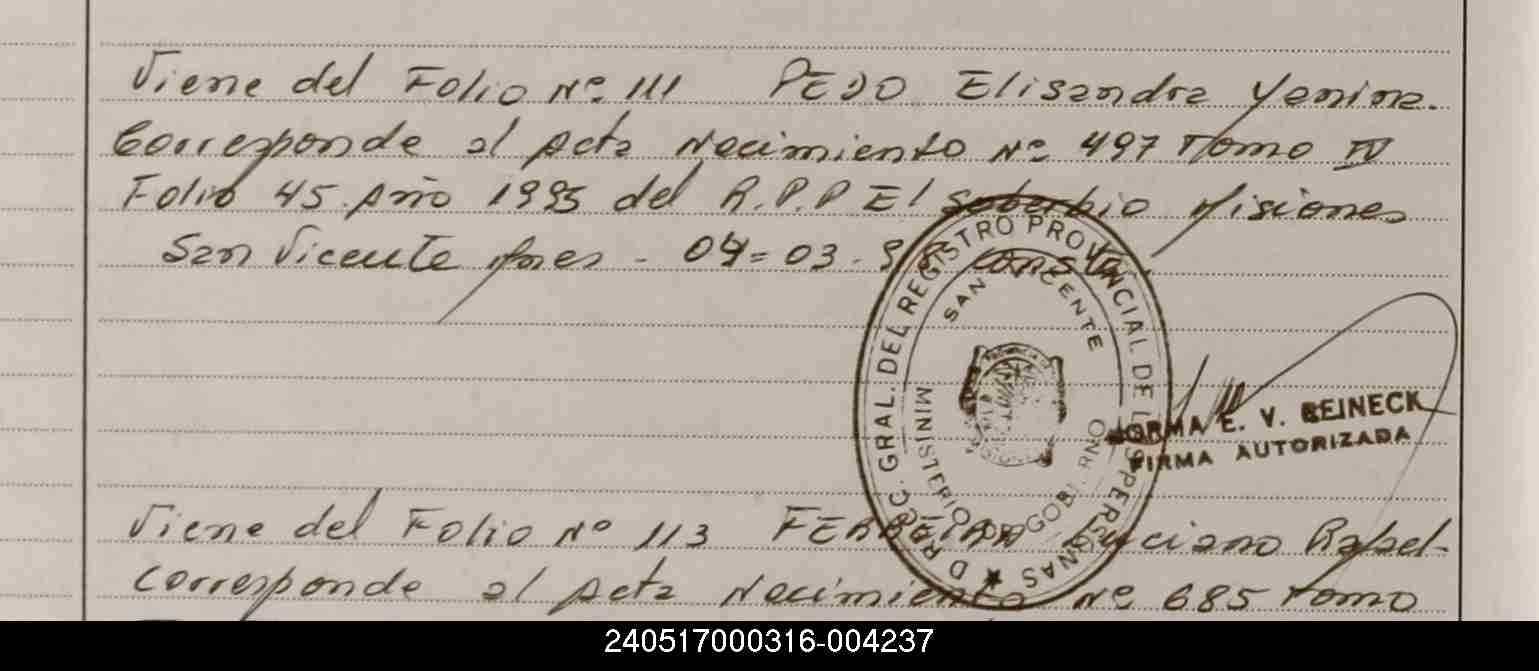 Viene del Folio Nº 111 PEDO Elisandra Yanina.
Corresponde al Acta Nacimiento Nº 497 Tomo IV
Folio 45 Año 1995 del R.P.P El Soberbio Misiones
San Vicente Mnes - 04=03- Conste.
DIRECC. GRAL. DEL REGISTRO PROVINCIAL DE LAS PERSONAS ★
SAN VICENTE
MINISTERIO DE GOBIERNO
NORMA E. V. BEINECK
FIRMA AUTORIZADA
Viene del Folio Nº 113 FERREIRA Luciano Rafael-
Corresponde al Acta Nacimiento Nº 685 Tomo
240517000316-004237